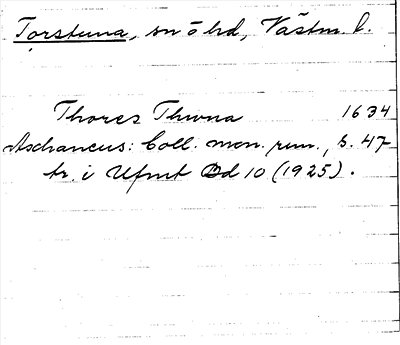 Torstuna, sn o hd, Västm. l.
Thores Thwna 1634
Aschaneus: Coll. mon. run., s. 47
tr. i Ufmt Bd 10 (1925).